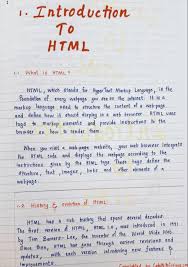 1. Introduction
To
HTML
1.1 What is HTML?
HTML, which stands for HyperText Markup Language, is the
foundation of every webpage you see on the internet. It is a
markup language used to structure the content of a webpage
and define how it should display in a web browser. HTML uses
tags to markup elements and provide instructions to the
browser on how to render them.
When you visit a webpage, your web browser interprets
the HTML code and displays the webpage according to the
instructions given by the HTML tags. These tags define the
structure, text, images, links and other elements of a
webpage.
1.2 History & Evolution of HTML
HTML has a rich history that spans several decades.
The first version of HTML, HTML 1.0, was introduced in 1991
by Tim Berners-Lee, the inventor of the World Wide Web.
Since then, HTML has gone through various revisions and
updates, with each version introducing new features &
improvements.